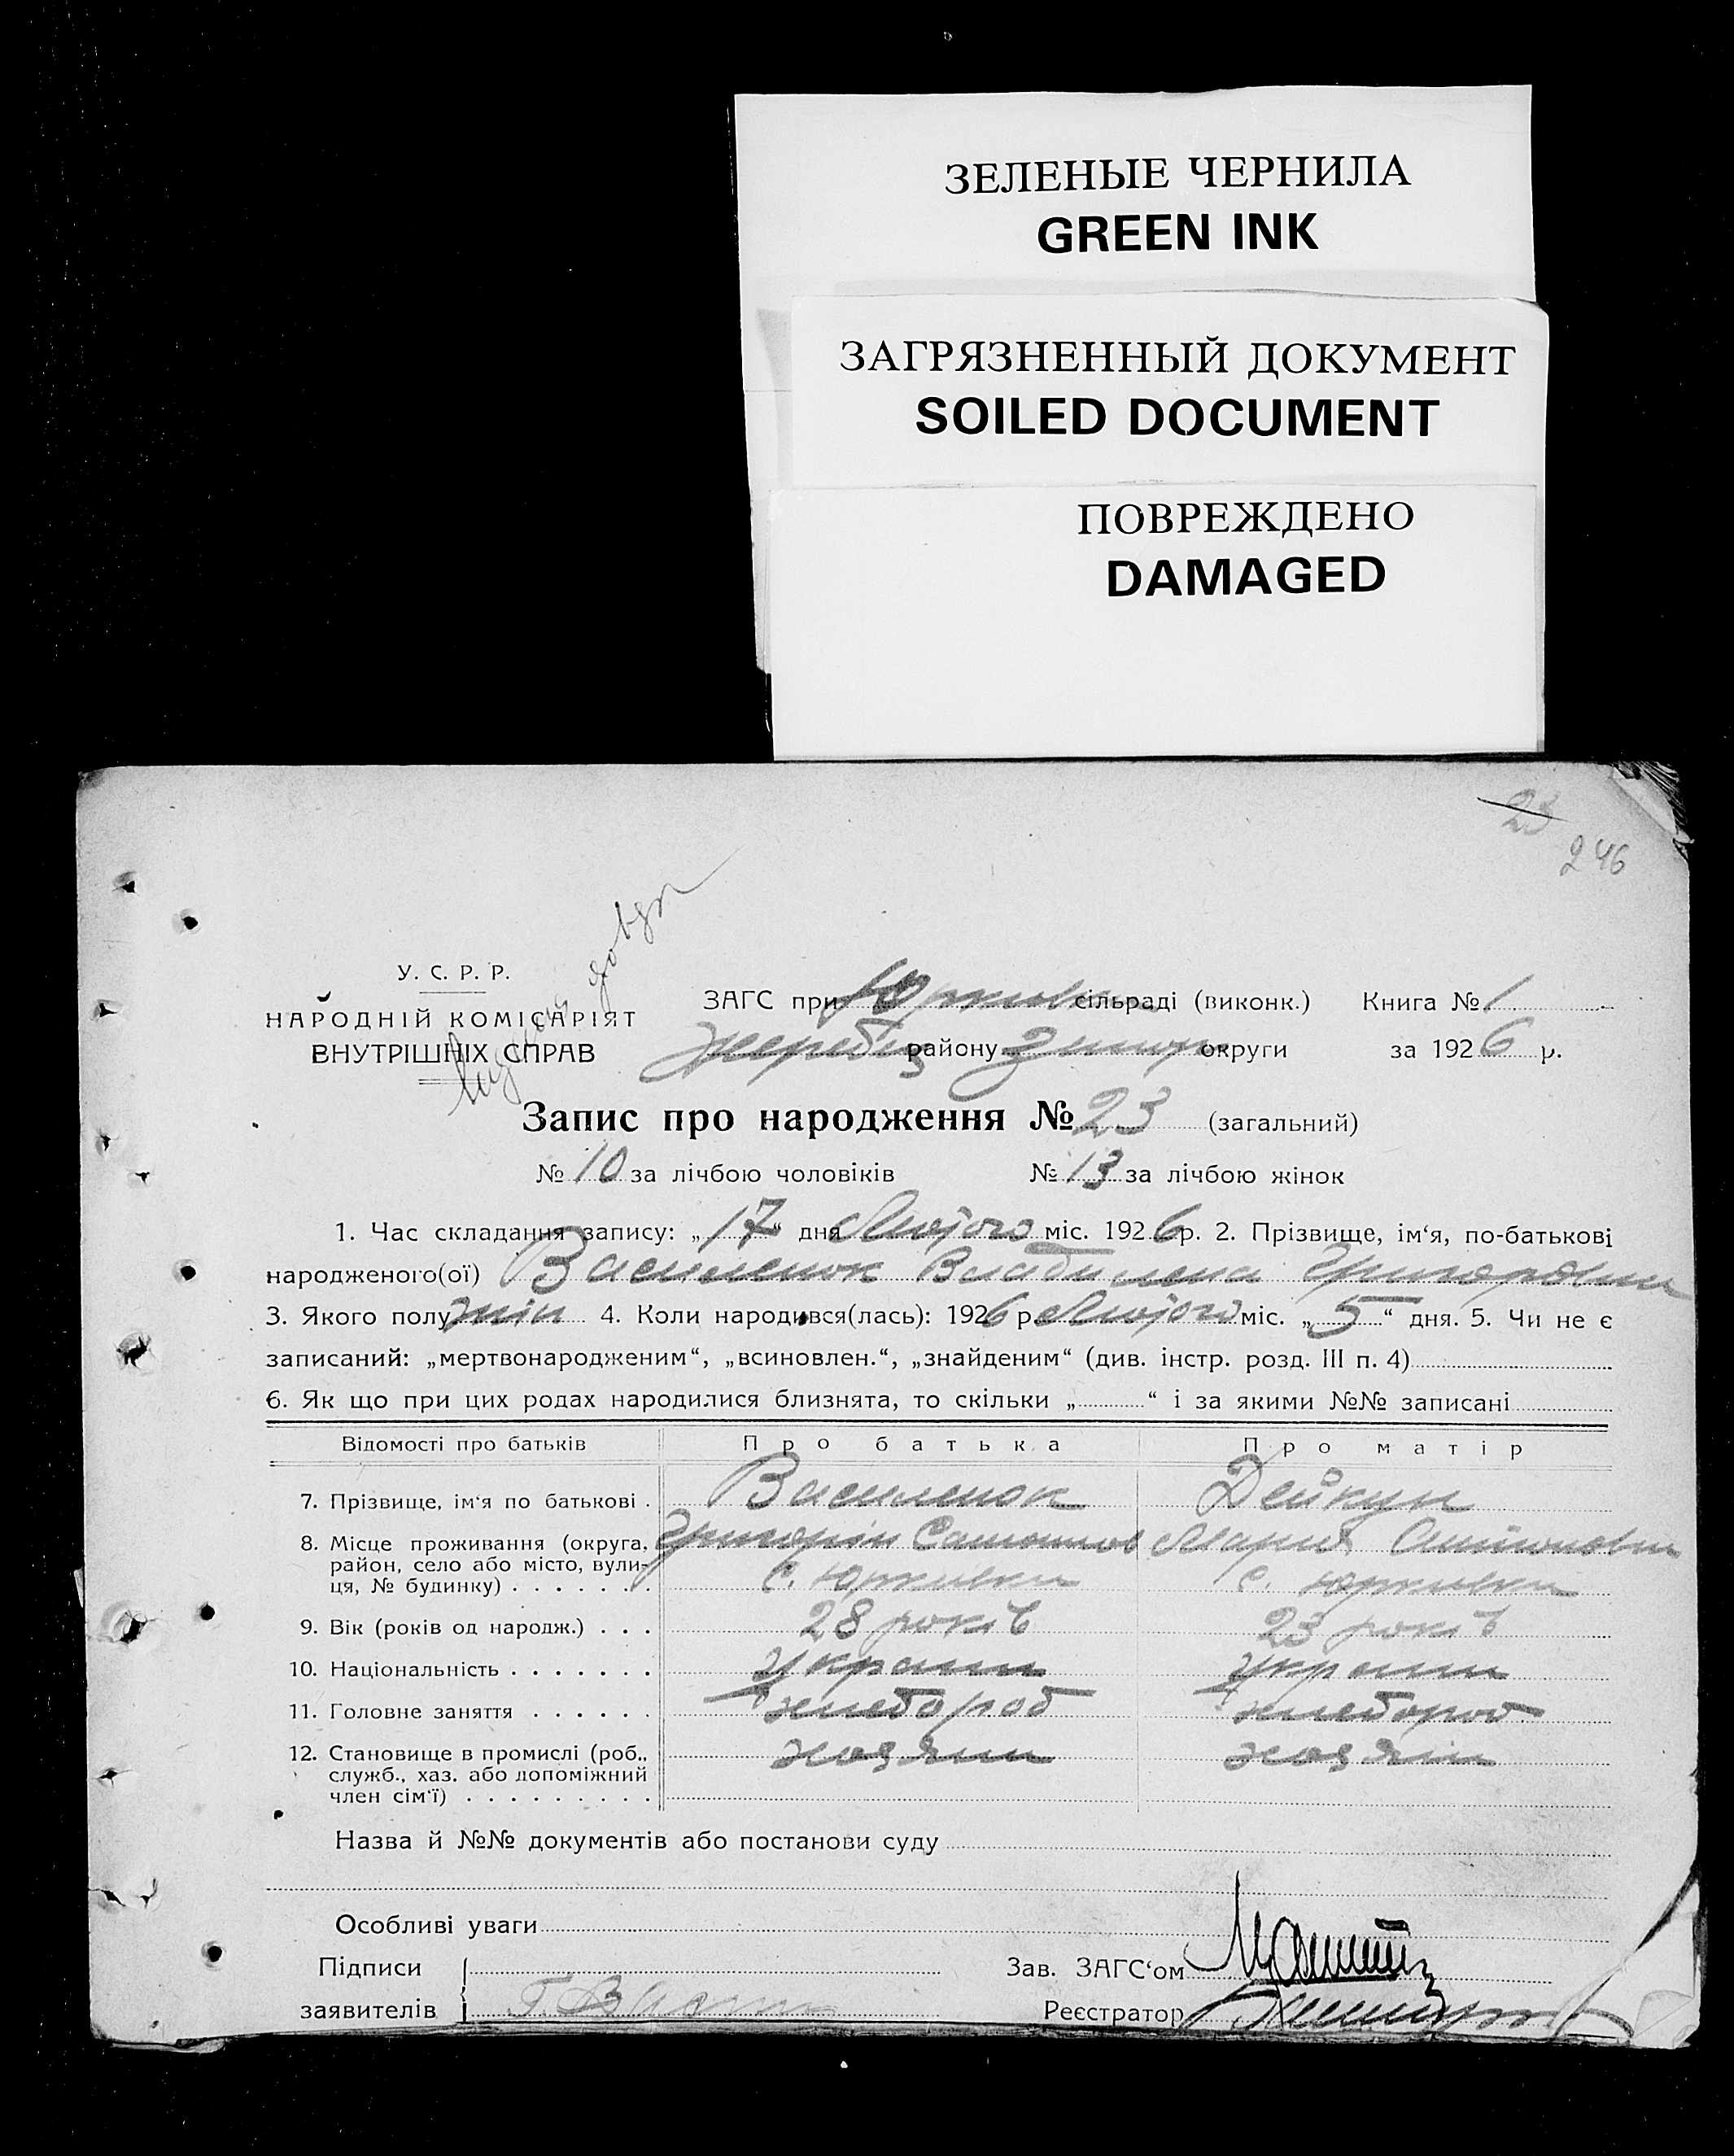 ЗЕЛЕНЫЕ ЧЕРНИЛА
GREEN INK
ЗАГРЯЗНЕННЫЙ ДОКУМЕНТ
SOILED DOCUMENT
ПОВРЕЖДЕНО
DAMAGED
23
246
У. С. Р. Р.
НАРОДНІЙ КОМІСАРІЯТ
ВНУТРІШНІХ СПРАВ
ЗАГС при сільраді (виконк.) Книга № 1
району округи за 1926 р.
Запис про народження № 23 (загальний)
№ 10 за лічбою чоловіків № 13 за лічбою жінок
1. Час складання запису: „17“ дня Лютого міс. 1926 р. 2. Прізвище, ім‘я, по-батькові
народженого(ої) Василенок Владилена Григоровна
3. Якого полу жін 4. Коли народився(лась): 1926 р. Лютого міс. „5“ дня. 5. Чи не є
записаний: „мертвонародженим“, „всиновлен.“, „знайденим“ (див. інстр. розд. III п. 4)
6. Як що при цих родах народилися близнята, то скільки „ “ і за якими №№ записані
Відомості про батьків Про батька Про матір
7. Прізвище, ім‘я по батькові . Василенок Дейкун
Григорій Мария Антоновна
8. Місце проживання (округа, район, село або місто, вулиця, № будинку) . . . . . . . с. Юрківка с. Юрківка
9. Вік (років од народж.) . . . 28 років 23 років
10. Національність . . . . . . . Україн Україн
11. Головне заняття . . . . . . хлебороб хлебороб
12. Становище в промислі (роб., служб., хаз. або допоміжний член сім‘ї) . . . . . . . . . хозяин хозяін
Назва й №№ документів або постанови суду
Особливі уваги
Підписи
заявителів
Зав. ЗАГС‘ом
Реєстратор